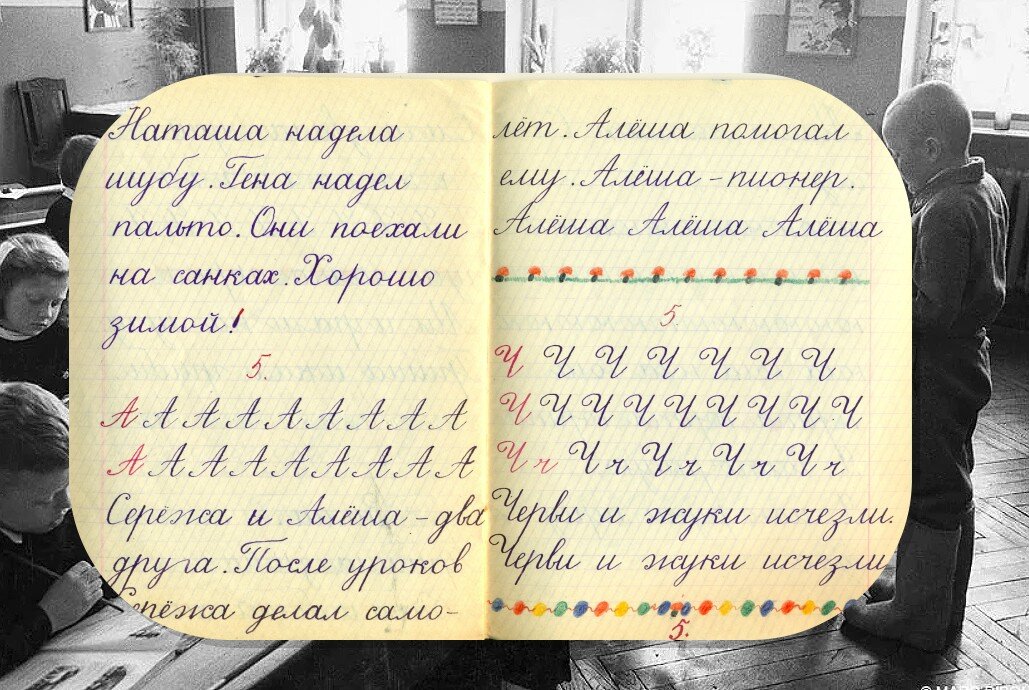 Наташа надела
шубу. Гена надел
пальто. Они поехали
на санках. Хорошо
зимой!
5.
А А А А А А А А А
А А А А А А А А А
Серёжа и Алёша – два
друга. После уроков
Серёжа делал само-
лёт. Алёша помогал
ему. Алёша – пионер.
Алёша Алёша Алёша
5
Ч Ч Ч Ч Ч Ч Ч
Ч Ч Ч Ч Ч Ч Ч Ч Ч
Ч ч Ч ч Ч ч Ч ч Ч ч
Черви и жуки исчезли.
Черви и жуки исчезли
5.